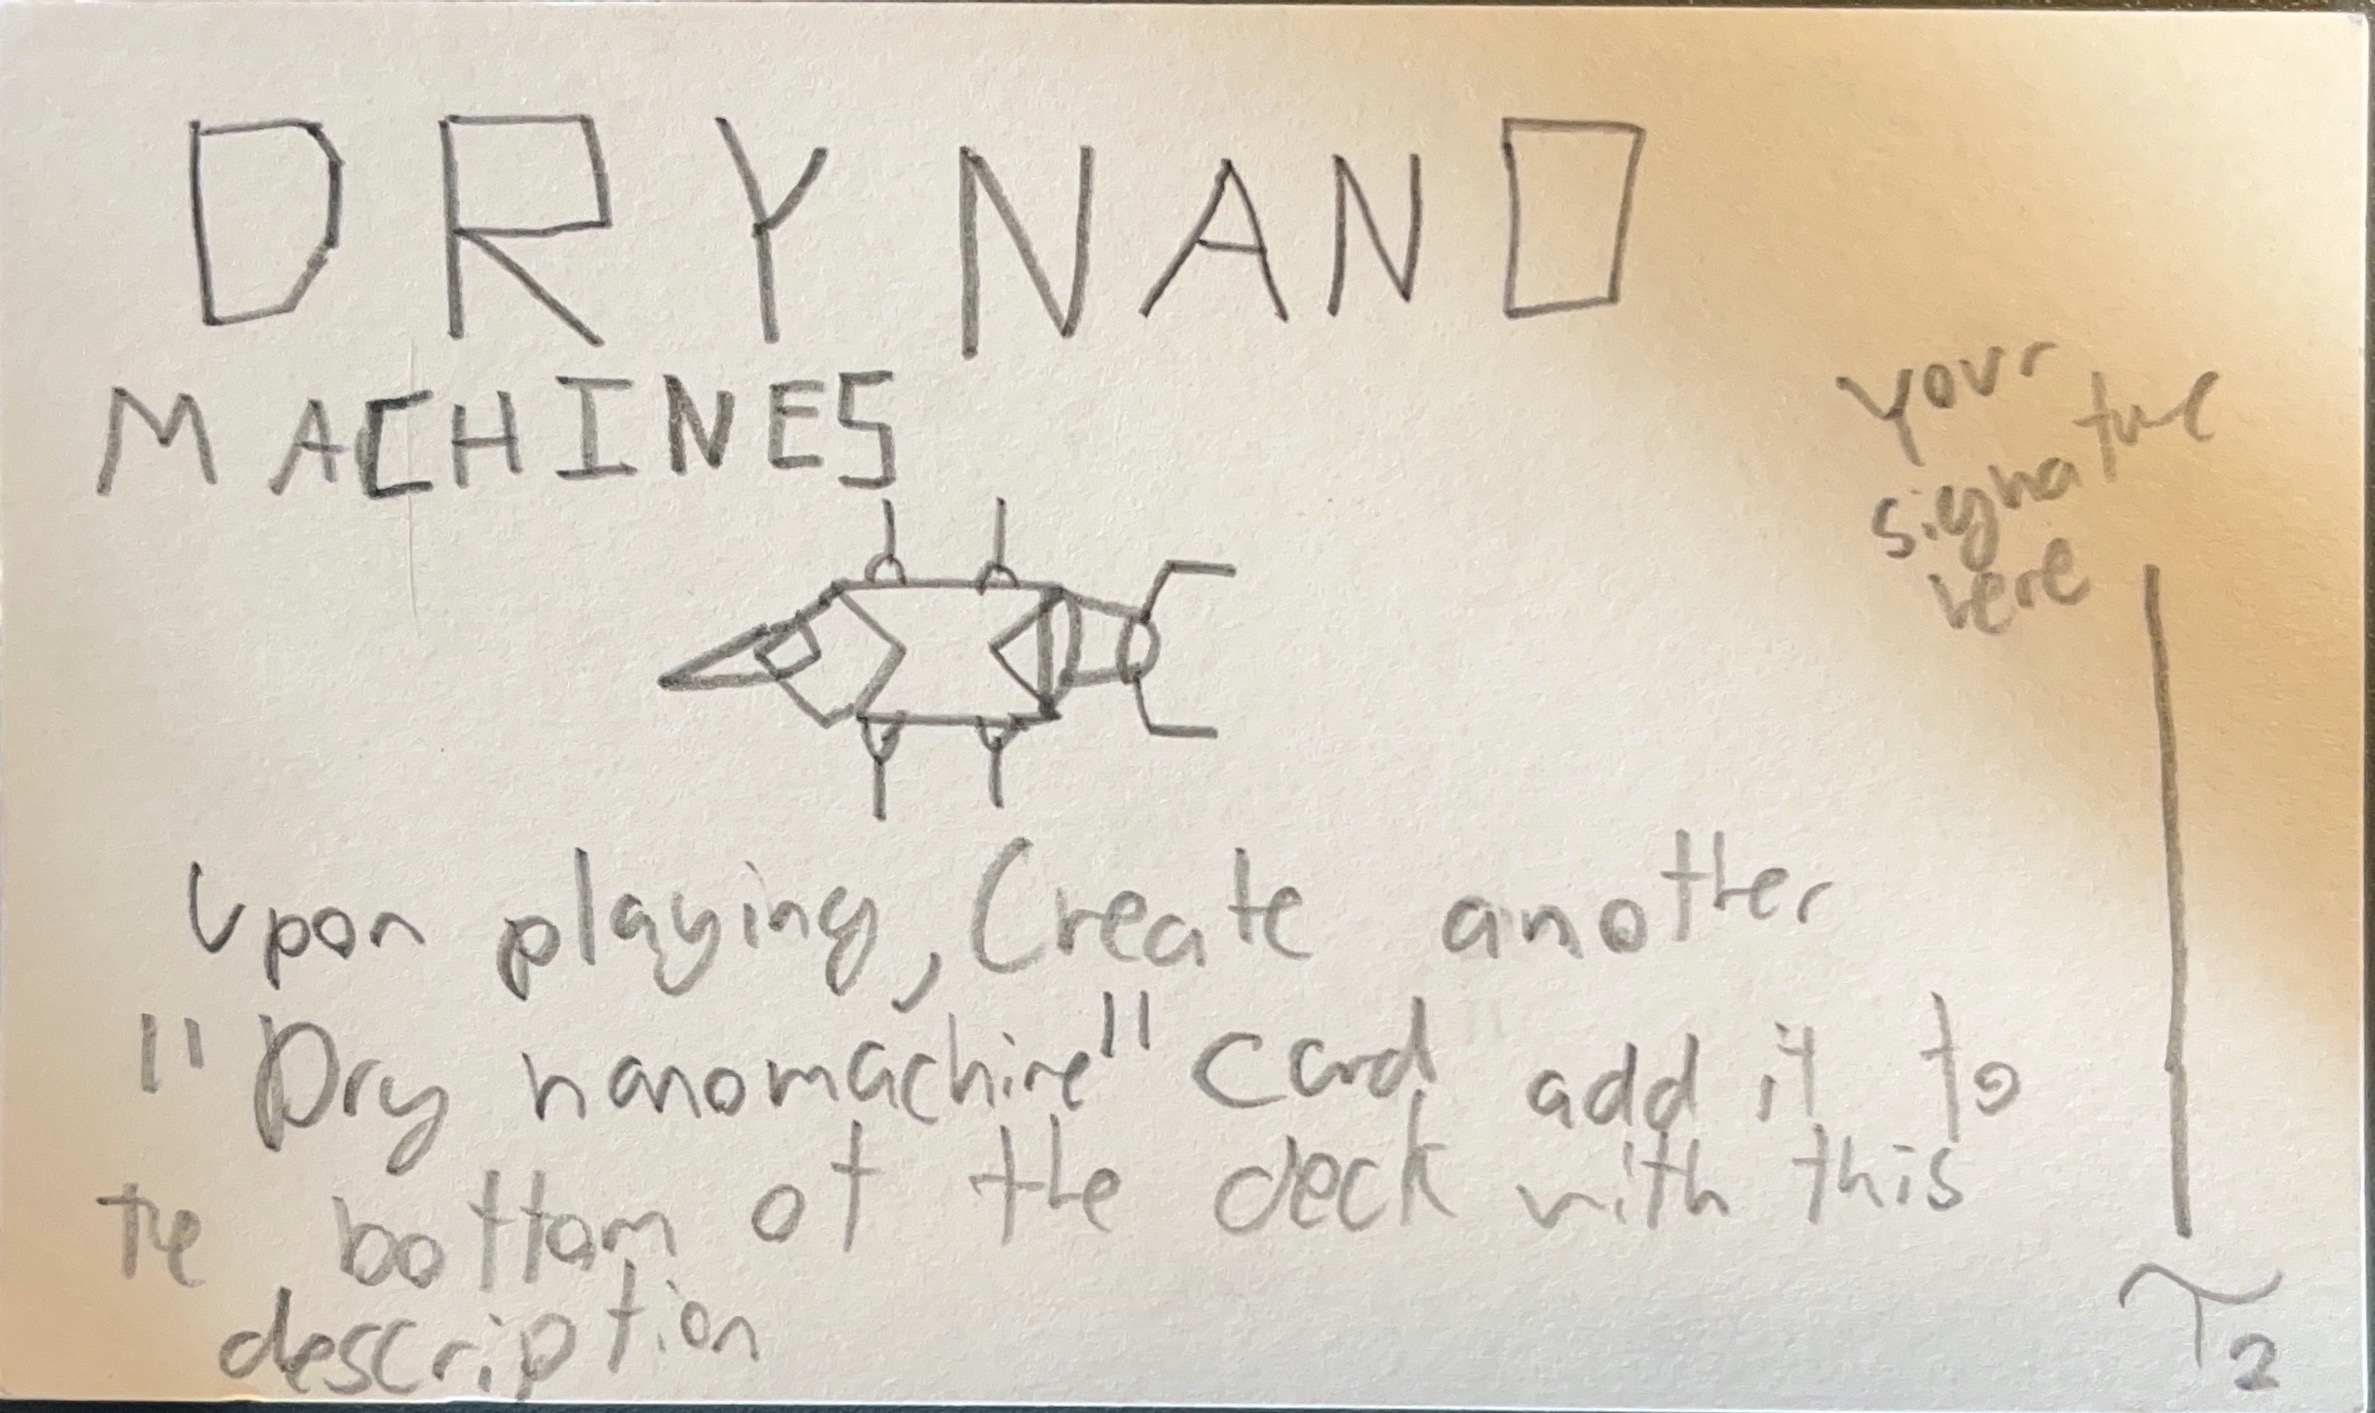 DRY NANO
MACHINES
your
signature
here
Upon playing, Create another
"Dry nanomachine" card add it to
the bottom of the deck with this
description
T2